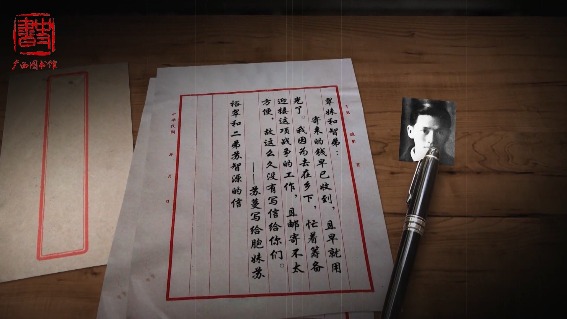 書
广西图书馆
翠妹和智弟：
寄来的钱早已收到，且早就用
光了。我因为去在乡下，忙着筹备
迎接这项战的工作，且邮寄不太
方便，故这么久没有写信给你们。
——苏蔓写给胞妹苏
裕翠和二弟苏智源的信